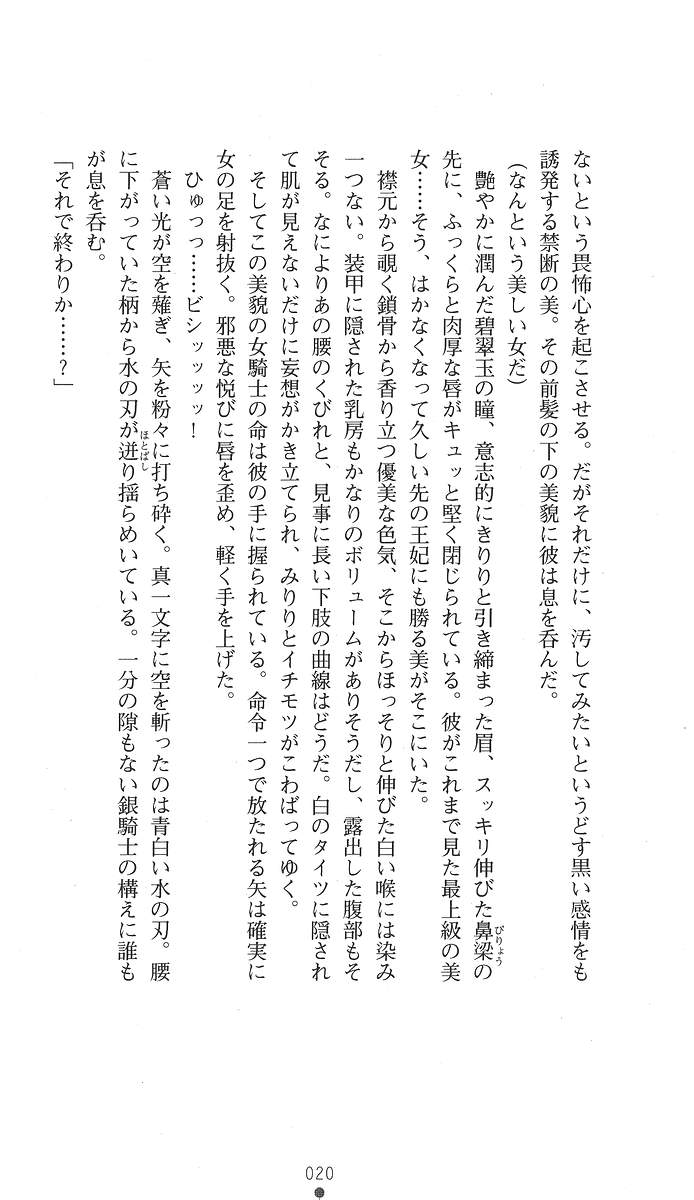 ないという畏怖心を起こさせる。だがそれだけに、汚してみたいというどす黒い感情をも
誘発する禁断の美。その前髪の下の美貌に彼は息を呑んだ。
(なんという美しい女だ)
艶やかに潤んだ碧翠玉の瞳、意志的にきりりと引き締まった眉、スッキリ伸びた鼻梁の
びりょう
先に、ふっくらと肉厚な唇がキュッと堅く閉じられている。彼がこれまで見た最上級の美
女……そう、はかなくなって久しい先の王妃にも勝る美がそこにいた。
襟元から覗く鎖骨から香り立つ優美な色気、そこからほっそりと伸びた白い喉には染み
一つない。装甲に隠された乳房もかなりのボリュームがありそうだし、露出した腹部もそ
そる。なによりあの腰のくびれと、見事に長い下肢の曲線はどうだ。白のタイツに隠され
て肌が見えないだけに妄想がかき立てられ、みりりとイチモツがこわばってゆく。
そしてこの美貌の女騎士の命は彼の手に握られている。命令一つで放たれる矢は確実に
女の足を射抜く。邪悪な悦びに唇を歪め、軽く手を上げた。
ひゅっっ……ビシッッッッ！
蒼い光が空を薙ぎ、矢を粉々に打ち砕く。真一文字に空を斬ったのは青白い水の刃。腰
に下がっていた柄から水の刃が迸り揺らめいている。一分の隙もない銀騎士の構えに誰も
ほとばし
が息を呑む。
「それで終わりか……？」
020